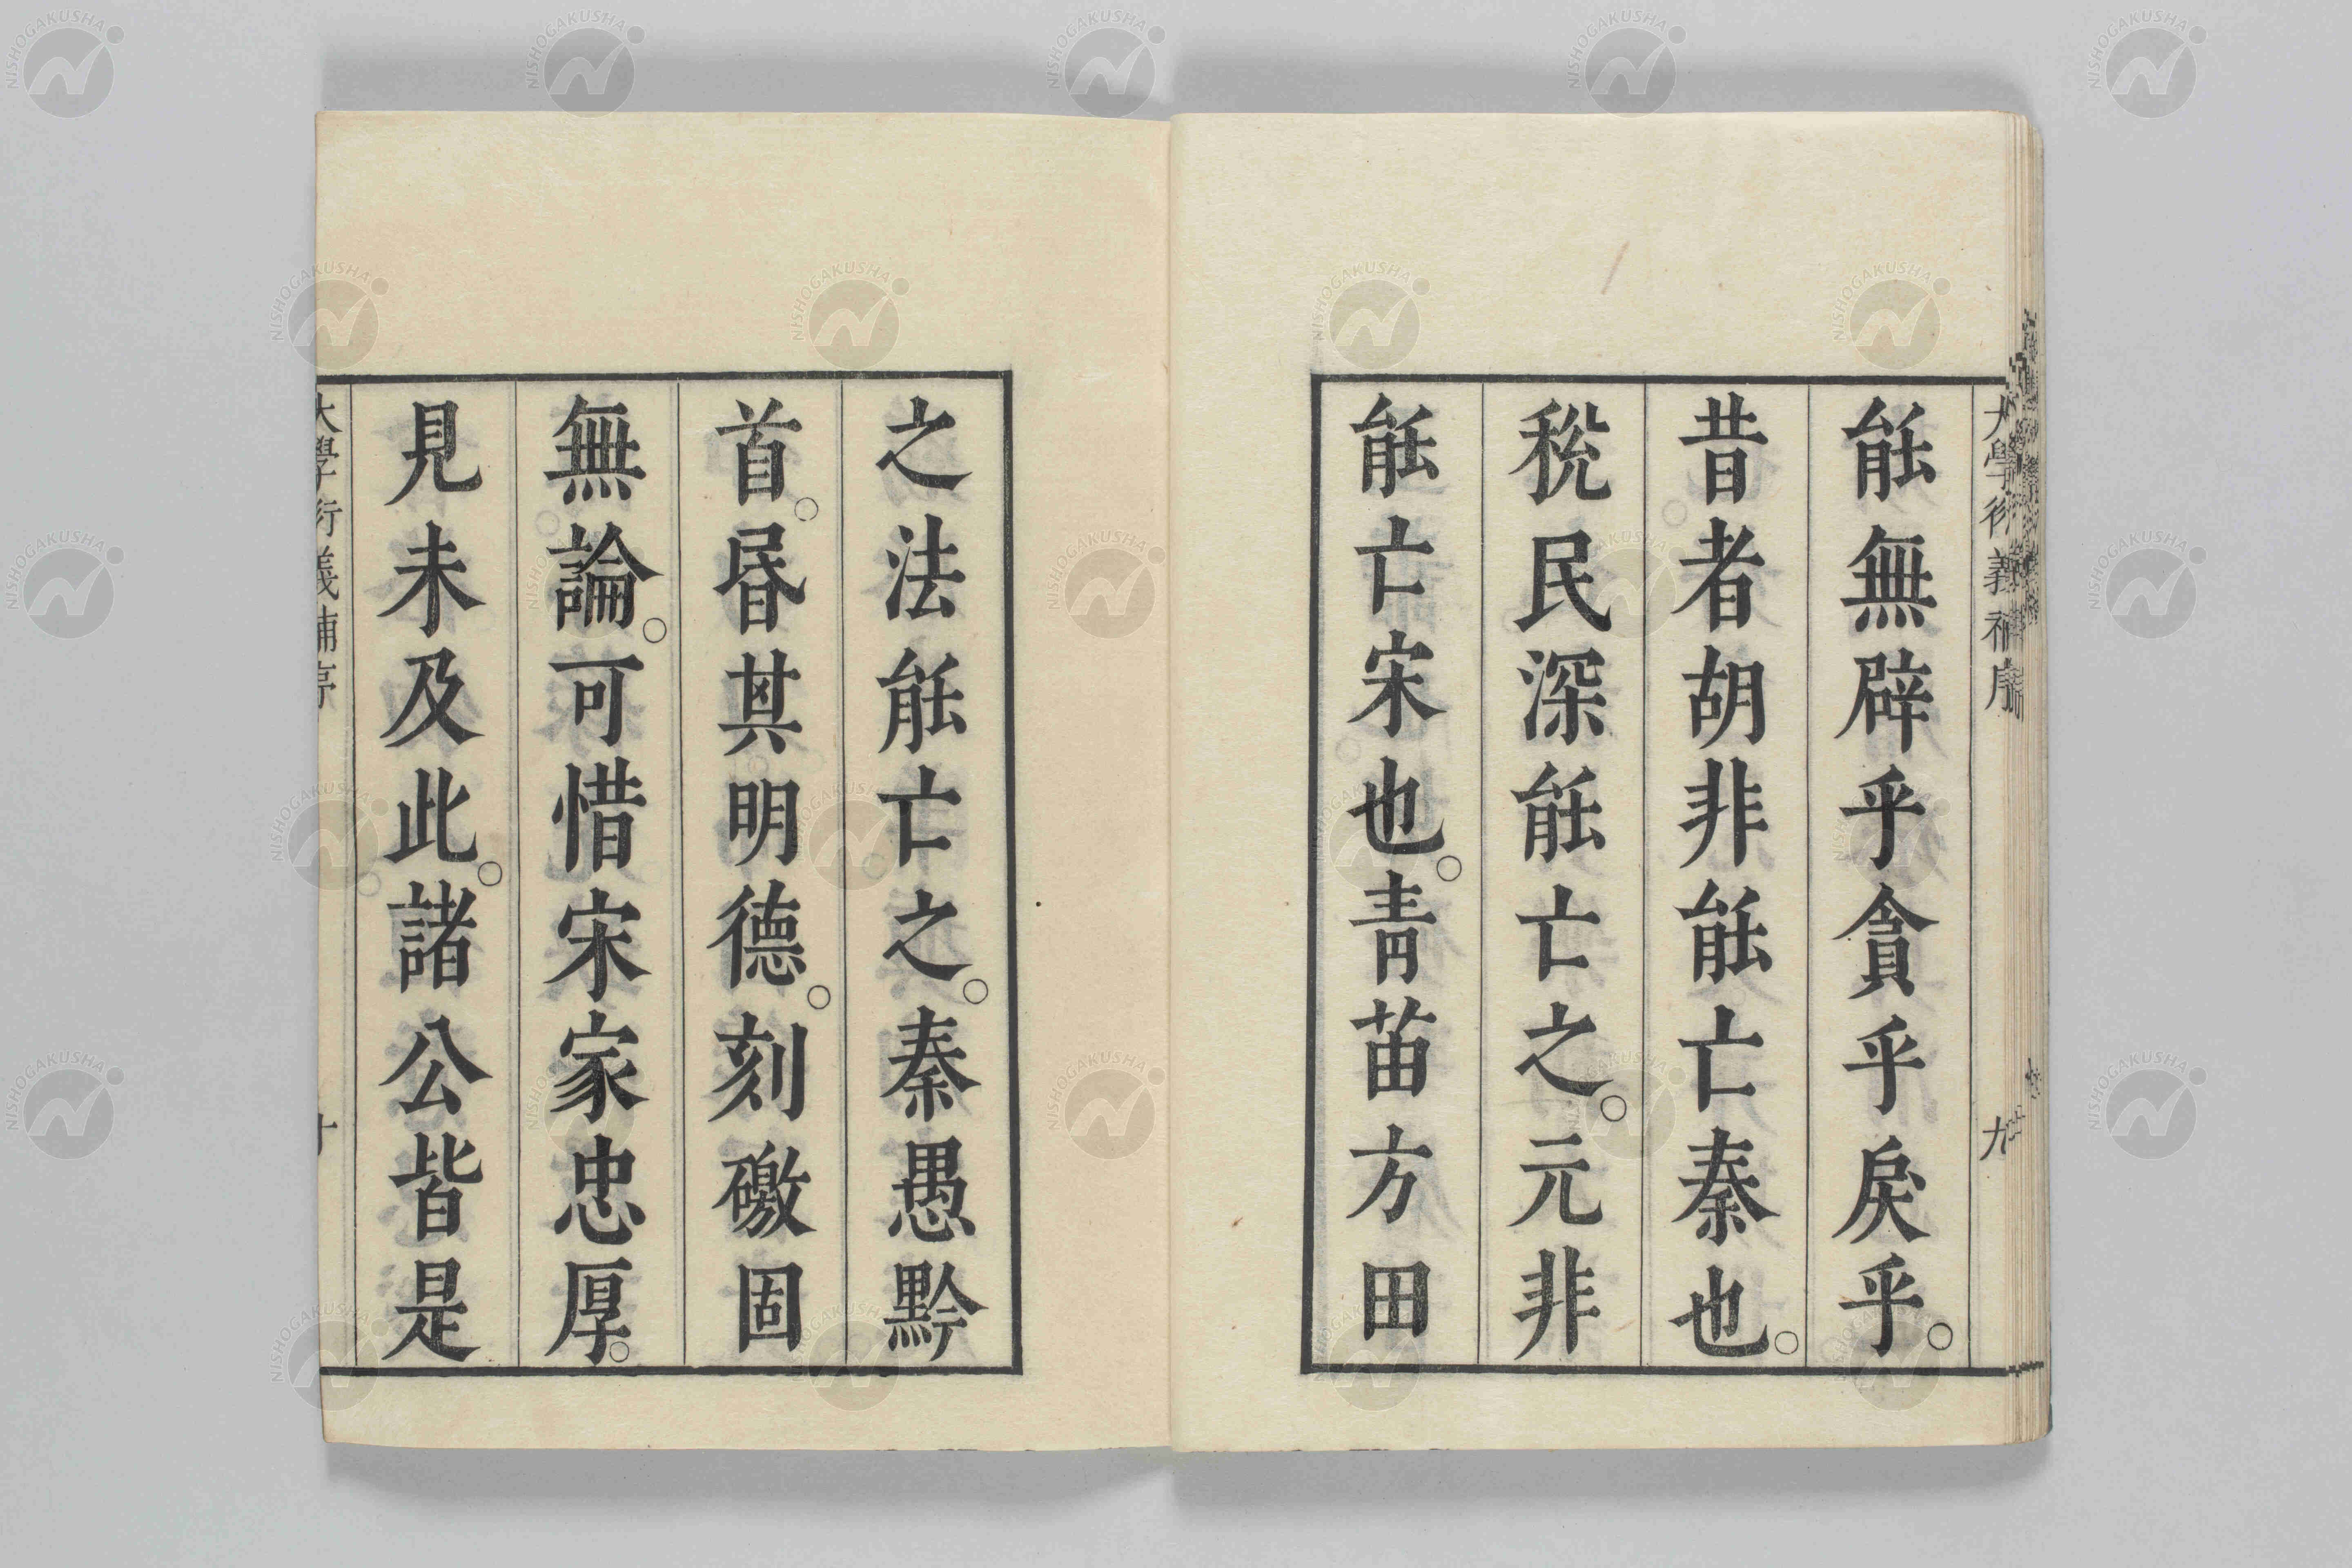 大學衍義補序
九
能無辟乎貪乎戾乎。
昔者胡非能亡秦也。
稅民深能亡之。元非
能亡宋也。青苗方田
之法能亡之。秦愚黔
首。昬其明德。刻礉固
無論。可惜宋家忠厚。
見未及此。諸公皆是
大學衍義補序
十
NISHOGAKUSHA